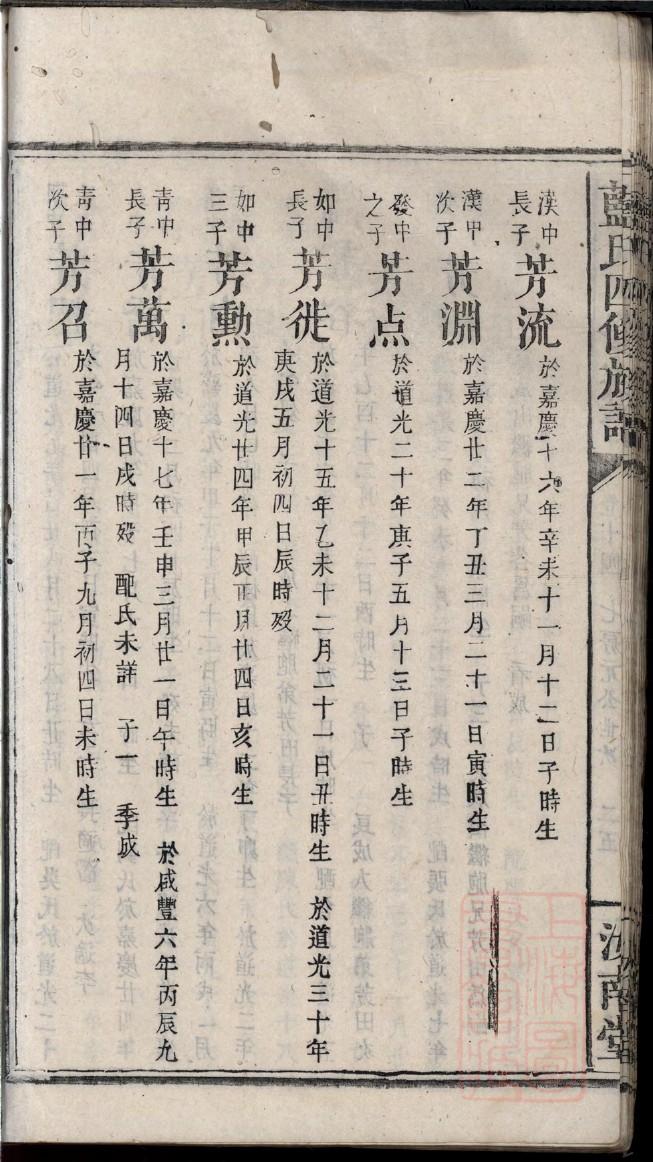 藍氏四修族譜
汝南堂
漢中長子 芳流 於嘉慶十六年辛未十一月十二日子時生
漢甲次子 芳淵 於嘉慶廿二年丁丑三月二十一日寅時生
發中之子 芳点 於道光二十年庚子五月十三日子時生
如中長子 芳徙 於道光十五年乙未十二月二十一日丑時生 於道光三十年
庚戌五月初四日辰時歿
如中三子 芳勳 於道光廿四年甲辰正月廿四日亥時生
靑中長子 芳萬 於嘉慶十七年壬申三月廿一日午時生 於咸豐六年丙辰九
月十四日戌時歿 配氏未詳 子一 季成
靑中次子 芳召 於嘉慶廿一年丙子九月初四日未時生